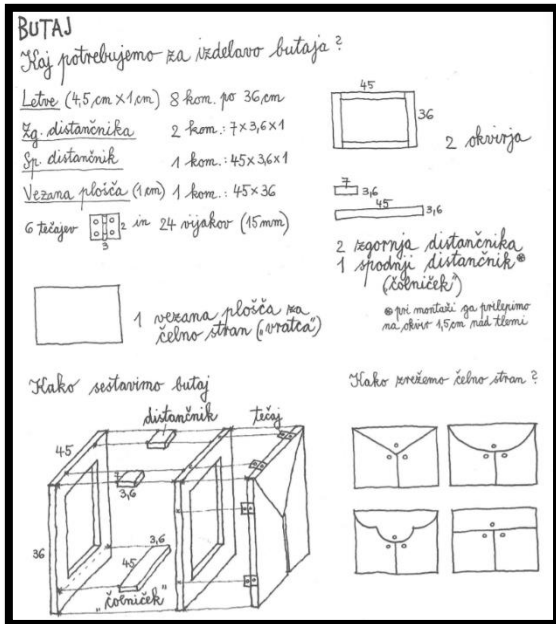 BUTAJ
Kaj potrebujemo za izdelavo butaja?
Letve (4,5 cm x 1 cm) 8 kom. po 36 cm
Zg. distančnika 2 kom.: 7x3,6x1
Sp. distančnik 1 kom.: 45x3,6x1
Vezana plošča (1 cm) 1 kom.: 45x36
6 tečajev 2 in 24 vijakov (15mm)
3
45
36
2 okvirja
7
3,6
45
3,6
2 zgornja distančnika
1 spodnji distančnik ⊛
("čolniček")
⊛ pri montaži ga prilepimo
na okvir 1,5 cm nad tlemi
1 vezana plošča za
čelno stran ("vratca")
Kako sestavimo butaj
distančnik
tečaj
45
7
3,6
36
3,6
45
"čolniček"
Kako zrežemo čelno stran?